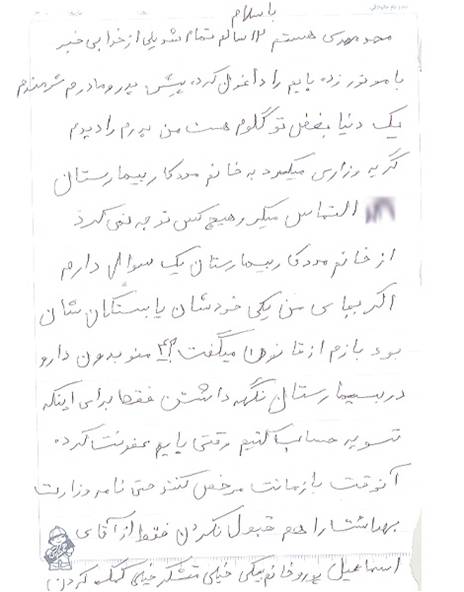 با سلام
محمد مهدی هستم ۱۲ سالم تمام شد یکی از خدا بی خبر
با موتور زده پایم را داغون کرده پیش پدر و مادرم شرمندم
یک دنیا بغض تو گلوم هست من پدرم را دیدم
گریه وزاری میکرد به خانم مددکار بیمارستان
التماس میکرد وهیچ کس توجه نمی کرد
از خانم مددکار بیمارستان یک سوالی دارم
اگر بجای من یکی خودشان یا بستگان شان
بود بازم از قانون میگفت منو بدون دارو
در بیمارستان نگهداشتن فقط برای اینکه
تسویه حساب کنیم وقتی پایم عفونت کرده
آنوقت با زمانت مرخص کنند حتی نامه وزارت
بهداشت را هم قبول نکردن فقط از آقای
اسماعیل پور و خانم بیگی خیلی متشکر خیلی کمک کردن